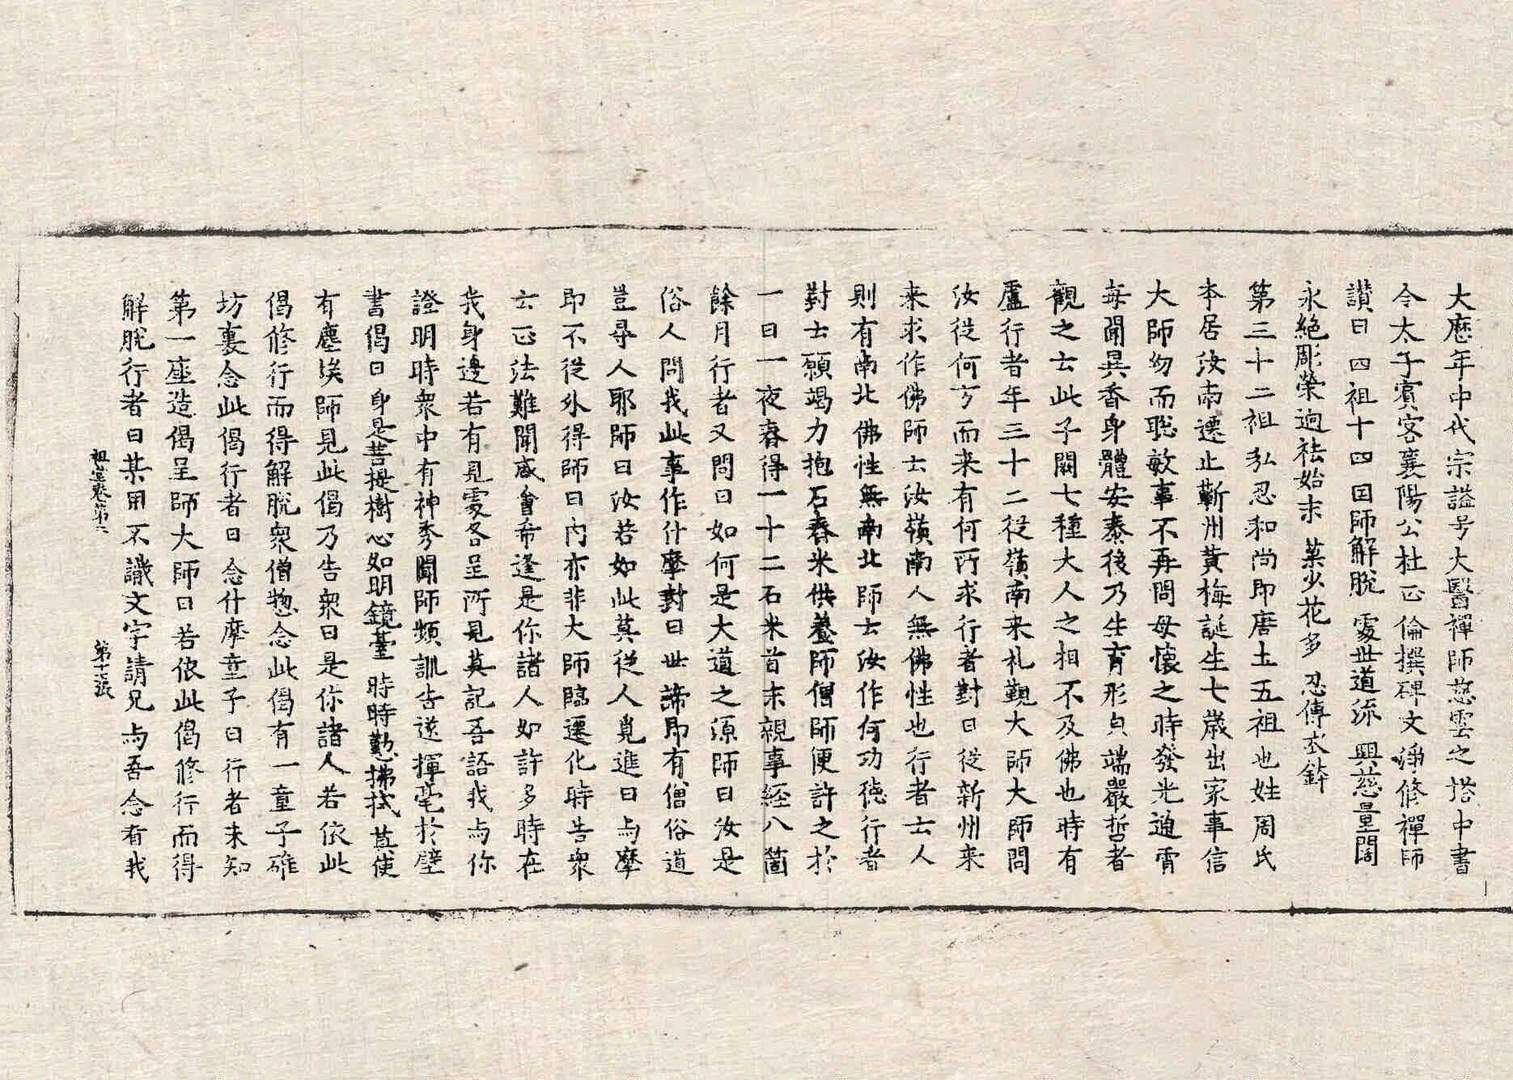 大曆年中代宗謚号大醫禪師慈雲之塔中書
令太子賓客襄陽公杜正倫撰碑文淨修禪師
讚曰四祖十四囙師解脫 處世道流 興慈量闊
永絕彫榮逈祛始末 菓少花多 忍傳衣鉢
第三十二祖弘忍和尚即唐土五祖也姓周氏
本居汝南遷止蘄州黃梅誕生七歲出家事信
大師㓜而聡敏事不再問母懷之時發光通霄
每聞異香身體安泰後乃生育形皃端嚴哲者
觀之云此子闕七種大人之相不及佛也時有
盧行者年三十二從嶺南来礼覲大師大師問
汝從何方而来有何所求行者對曰從新州来
来求作佛師云汝嶺南人無佛性也行者云人
則有南北佛性無南北師云汝作何功德行者
對士願竭力抱石舂米供養師僧師便許之於
一日一夜舂得一十二石米首末親事経八箇
餘月行者又問曰如何是大道之源師曰汝是
俗人問我此事作什摩對曰世諦即有僧俗道
豈尋人耶師曰汝若如此莫從人覓進曰与摩
即不從外得師曰內亦非大師臨遷化時告衆
云正法難聞盛會希逢是你諸人如許多時在
我身邊若有見處各呈所見莫記吾語我与你
證明時衆中有神秀聞師頻訓告遂揮毫於壁
書偈曰身是菩提樹心如明鏡臺 時時懃拂拭 莫使
有塵埃師見此偈乃告衆曰是你諸人若依此
偈修行而得解脫衆僧惣念此偈有一童子碓
坊裏念此偈行者曰念什摩童子曰行者未知
第一座造偈呈師大師曰若依此偈修行而得
解脫行者曰某用不識文字請兄与吾念看我
祖堂卷第二 第十張